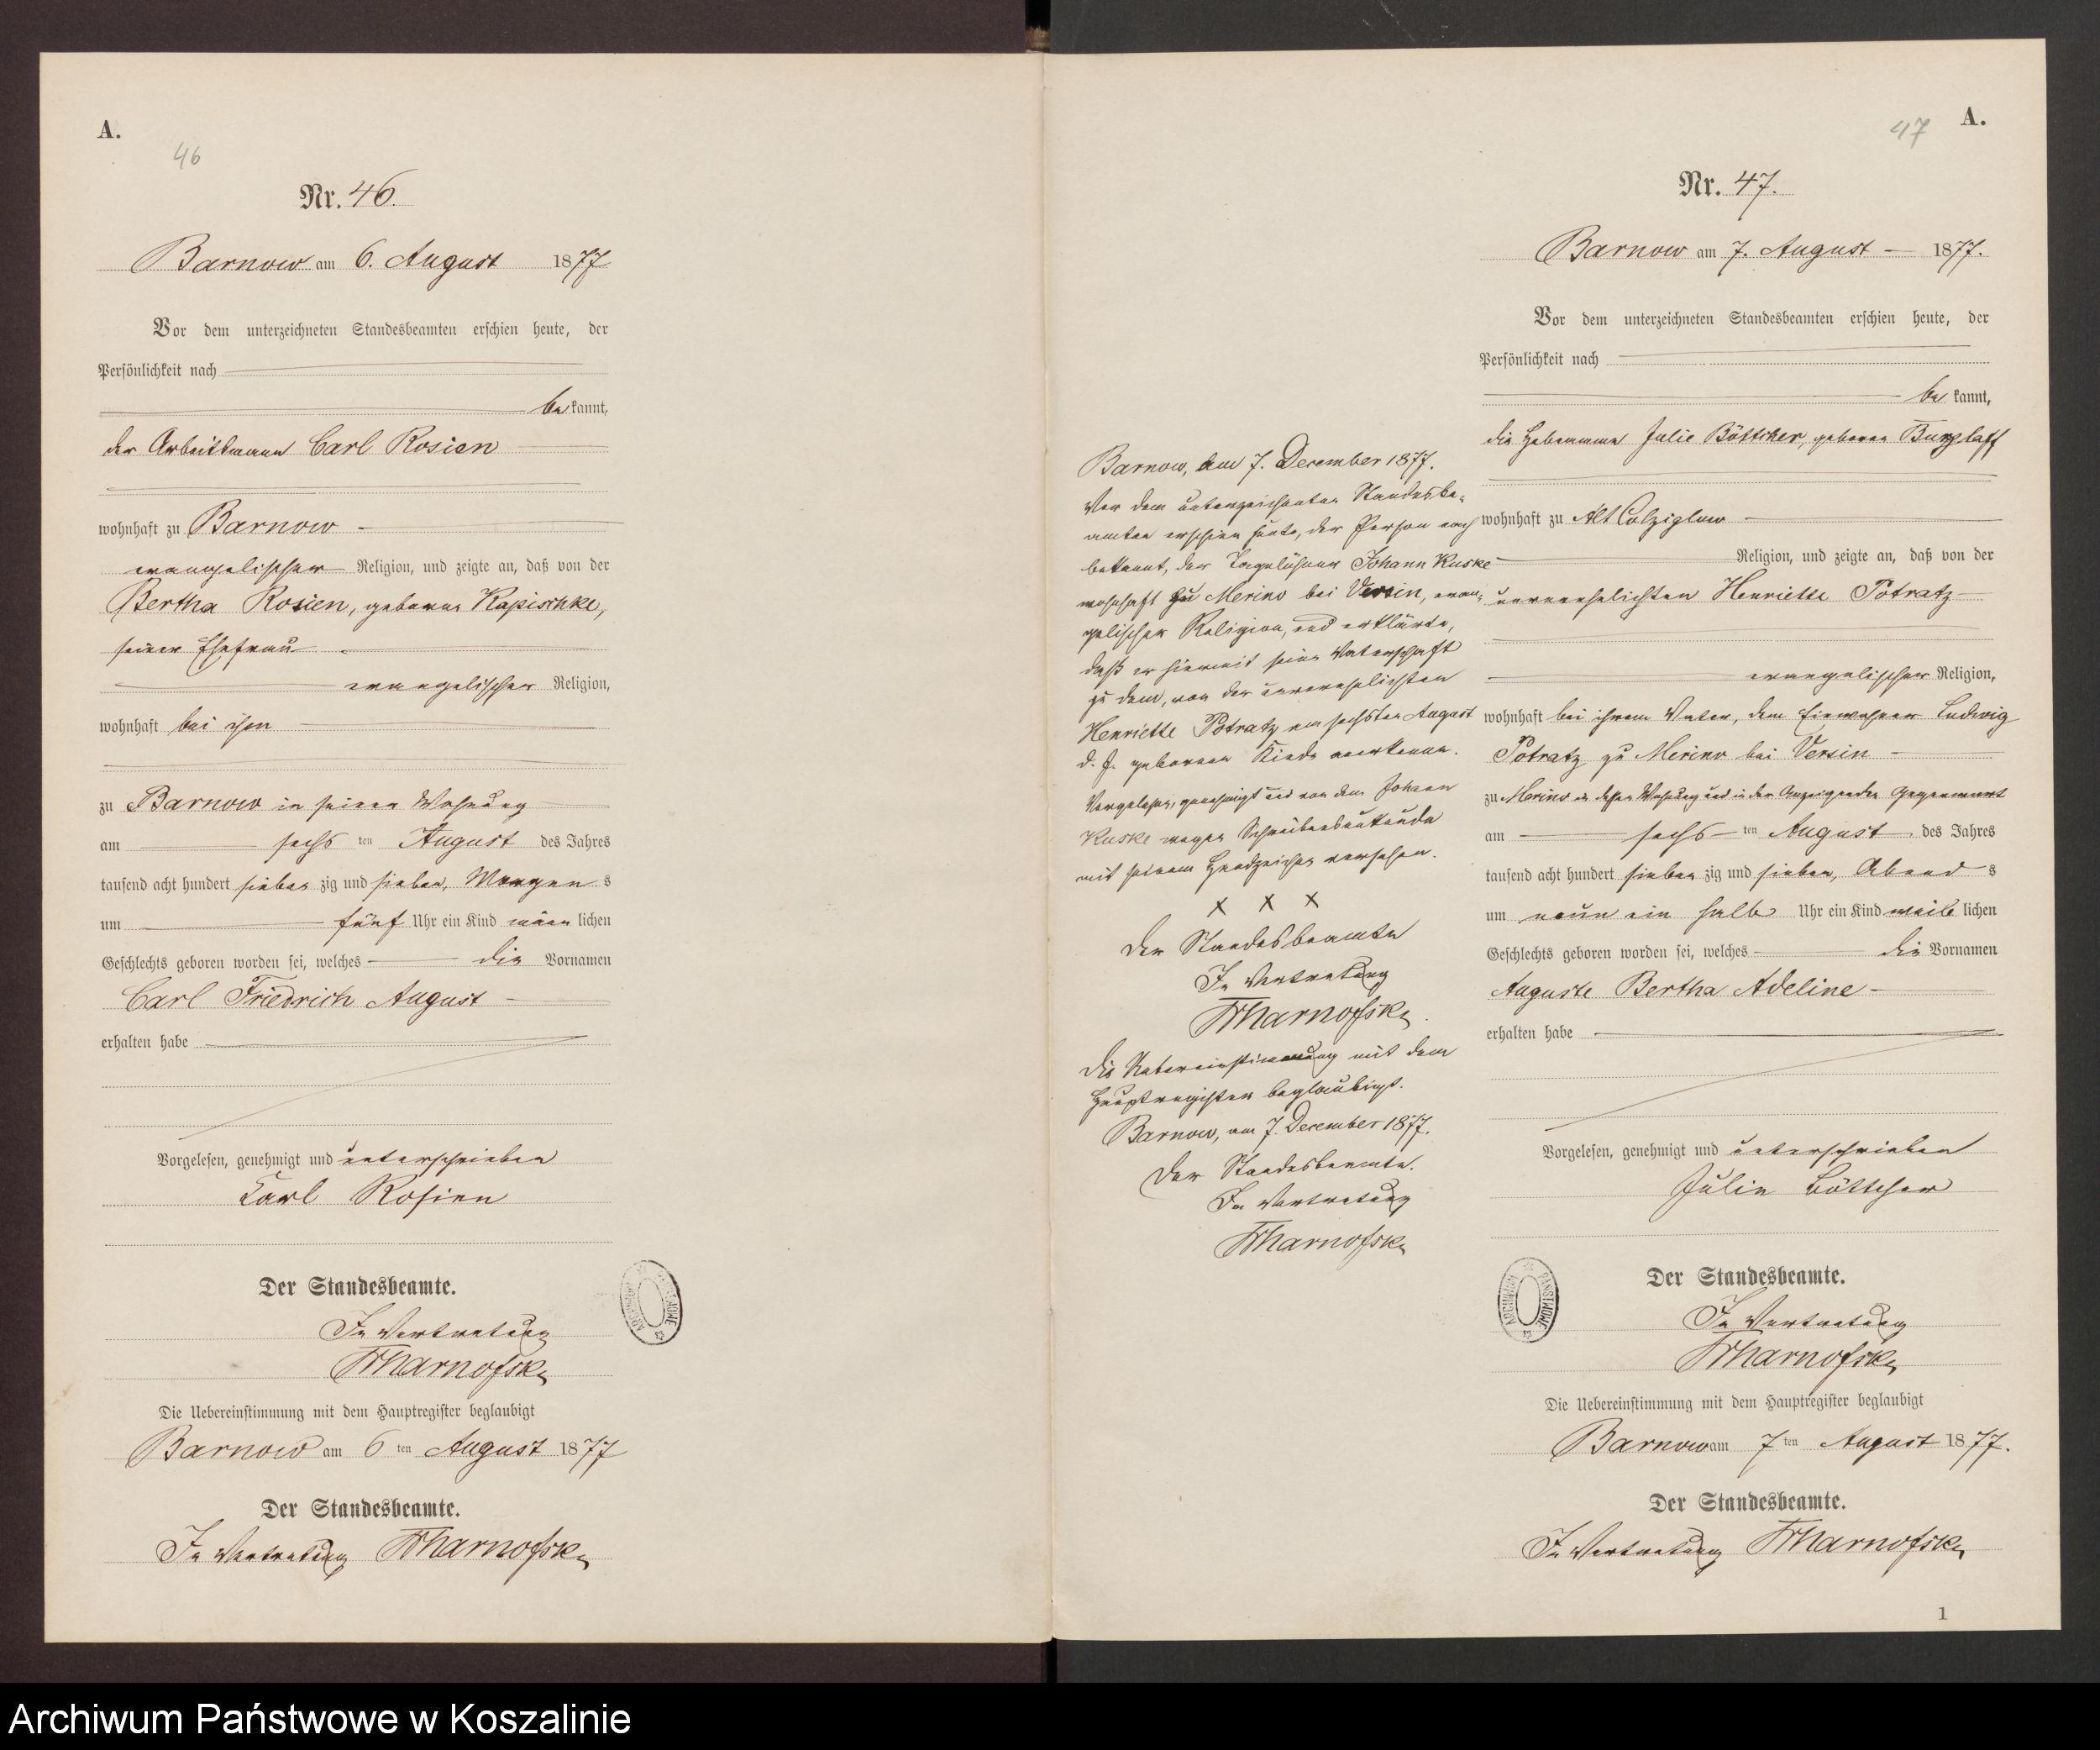 A.
46
Nr. 46.
Barnow am 6. August 1877
Vor dem unterzeichneten Standesbeamten erschien heute, der
Persönlichkeit nach
be kannt,
der Arbeitsmann Carl Rosien
wohnhaft zu Barnow
evangelischer Religion, und zeigte an, daß von der
Bertha Rosien, geborene Kapischke,
seiner Ehefrau
evangelischer Religion,
wohnhaft bei ihm
zu Barnow in seiner Wohnung
am sechs ten August des Jahres
tausend acht hundert sieben zig und sieben, Morgen s
um fünf Uhr ein Kind männ lichen
Geschlechts geboren worden sei, welches die Vornamen
Carl Friedrich August
erhalten habe
Vorgelesen, genehmigt und unterschrieben
Karl Rosien
Der Standesbeamte.
In Vertretung
Die Uebereinstimmung mit dem Hauptregister beglaubigt
Barnow am 6 ten August 1877
Der Standesbeamte.
In Vertretung
Barnow, am 7. December 1877.
Vor dem unterzeichneten Standesbe-
amten erschien heute, der Person nach
bekannt, der Tagelöhner Johann Kuske
wohnhaft zu Merino bei Versin, evan-
gelischer Religion, und erklärte,
daß er hiermit seine Vaterschaft
zu dem, von der unverehelichten
Henriette Potratz am sechsten August
d. J. geborenen Kinde anerkenne.
Vorgelesen, genehmigt und von dem Johann
Kuske wegen Schreibensunkunde
mit seinem Handzeichen versehen.
X X X
Der Standesbeamte
In Vertretung
Die Uebereinstimmung mit dem
Hauptregister beglaubigt.
Barnow, am 7. December 1877.
Der Standesbeamte.
In Vertretung
47
A.
Nr. 47.
Barnow am 7. August 1877.
Vor dem unterzeichneten Standesbeamten erschien heute, der
Persönlichkeit nach
be kannt,
die Hebamme Julie Böttcher, geborene Butzlaff
wohnhaft zu Alt Colziglow
Religion, und zeigte an, daß von der
unverehelichten Henriette Potratz
evangelischer Religion,
wohnhaft bei ihrem Vater, dem Einwohner Ludwig
Potratz zu Merino bei Versin
zu Merino in dessen Wohnung und in der Anzeigenden Gegenwart
am sechs ten August des Jahres
tausend acht hundert sieben zig und sieben, Abend s
um neun ein halb Uhr ein Kind weib lichen
Geschlechts geboren worden sei, welches die Vornamen
Auguste Bertha Adeline
erhalten habe
Vorgelesen, genehmigt und unterschrieben
Julie Böttcher
ARCHIWUM PAŃSTWOWE
Der Standesbeamte.
In Vertretung
Die Uebereinstimmung mit dem Hauptregister beglaubigt
Barnow am 7 ten August 1877.
Der Standesbeamte.
In Vertretung
1
Archiwum Państwowe w Koszalinie